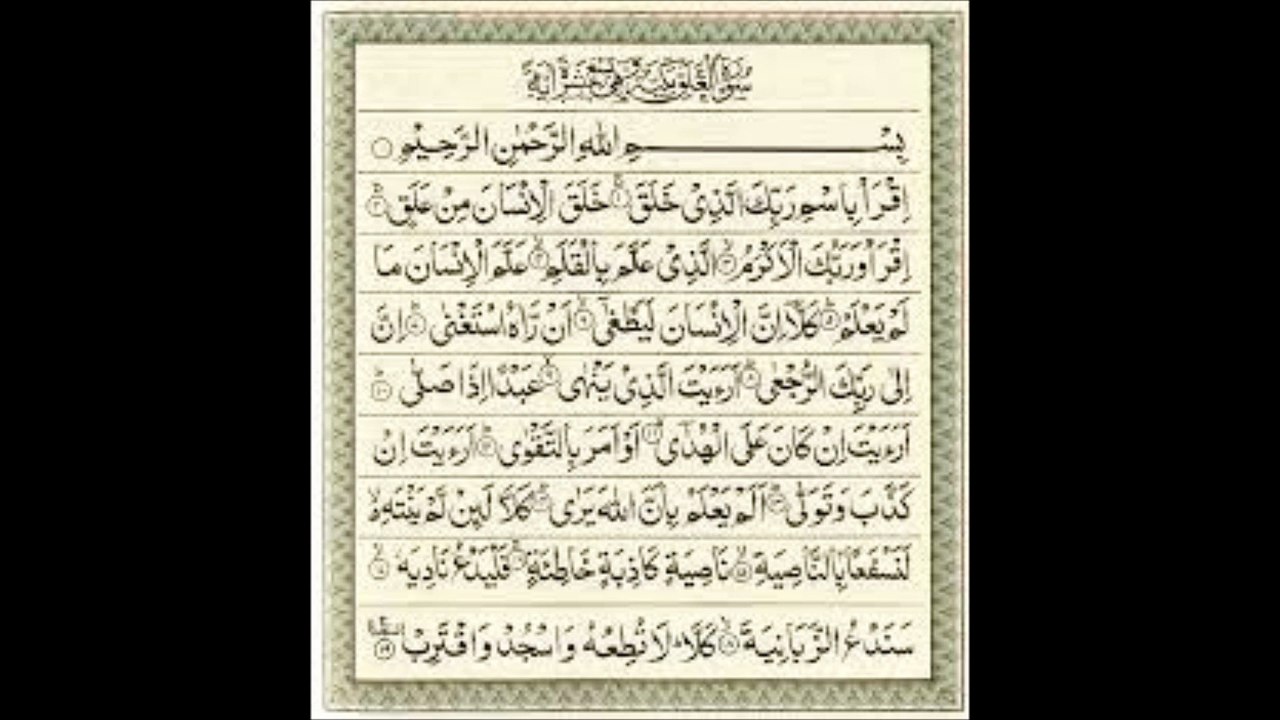 سورة العلق مكية وهي تسع عشرة آية
بِسْمِ اللهِ الرَّحْمٰنِ الرَّحِيْمِ ○
اِقْرَأْ بِاسْمِ رَبِّكَ الَّذِيْ خَلَقَ ۝١ خَلَقَ الْاِنْسَانَ مِنْ عَلَقٍ ۝٢
اِقْرَأْ وَرَبُّكَ الْاَكْرَمُ ۝٣ الَّذِيْ عَلَّمَ بِالْقَلَمِ ۝٤ عَلَّمَ الْاِنْسَانَ مَا
لَمْ يَعْلَمْ ۝٥ كَلَّآ اِنَّ الْاِنْسَانَ لَيَطْغٰىٓ ۝٦ اَنْ رَّاٰهُ اسْتَغْنٰى ۝٧ اِنَّ
اِلٰى رَبِّكَ الرُّجْعٰى ۝٨ اَرَءَيْتَ الَّذِيْ يَنْهٰى ۝٩ عَبْدًا اِذَا صَلّٰى ۝١٠
اَرَءَيْتَ اِنْ كَانَ عَلَى الْهُدٰىٓ ۝١١ اَوْ اَمَرَ بِالتَّقْوٰى ۝١٢ اَرَءَيْتَ اِنْ
كَذَّبَ وَتَوَلّٰى ۝١٣ اَلَمْ يَعْلَمْ بِاَنَّ اللهَ يَرٰى ۝١٤ كَلَّا لَئِنْ لَّمْ يَنْتَهِ ۙ
لَنَسْفَعًا بِالنَّاصِيَةِ ۝١٥ نَاصِيَةٍ كَاذِبَةٍ خَاطِئَةٍ ۝١٦ فَلْيَدْعُ نَادِيَهٗ ۝١٧
سَنَدْعُ الزَّبَانِيَةَ ۝١٨ كَلَّا ؕ لَا تُطِعْهُ وَاسْجُدْ وَاقْتَرِبْ ۝١٩